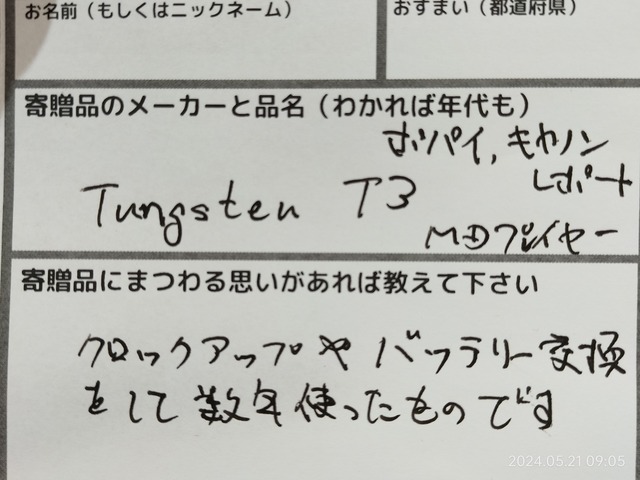 お名前（もしくはニックネーム）
おすまい（都道府県）
寄贈品のメーカーと品名（わかれば年代も）
ホパイ，キヤノン
レポート
Tungsten T3
MDプレイヤー
寄贈品にまつわる思いがあれば教えて下さい
クロックアップや バッテリー交換
をして数年使ったものです
2024.05.21 09:05